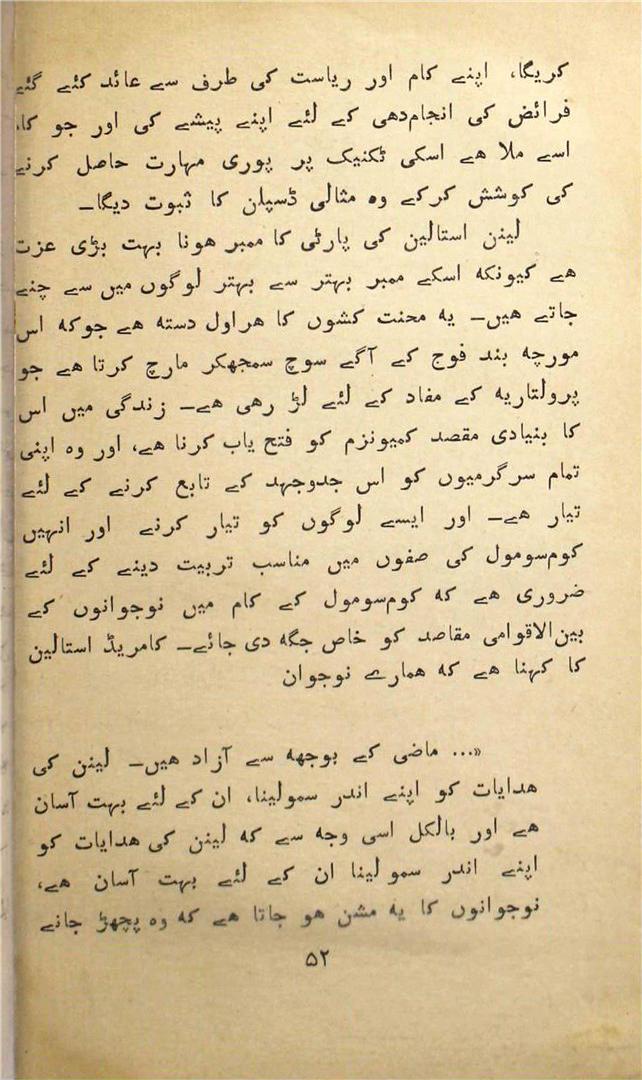 کریگا، اپنے کام اور ریاست کی طرف سے عائد کئے گئے
فرائض کی انجام‌دھی کے لئے اپنے پیشے کی اور جو کام
اسے ملا ھے اسکی ٹکنیک پر پوری مہارت حاصل کرنے
کی کوشش کرکے وہ مثالی ڈسپلن کا ثبوت دیگا۔
لینن استالین کی پارٹی کا ممبر ھونا بہت بڑی عزت
ھے کیونکہ اسکے ممبر بہتر سے بہتر لوگوں میں سے چنے
جاتے ھیں۔ یہ محنت کشوں کا ھراول دستہ ھے جوکہ اس
مورچہ بند فوج کے آگے سوچ سمجھکر مارچ کرتا ھے جو
پرولتاریہ کے مفاد کے لئے لڑ رھی ھے۔ زندگی میں اس
کا بنیادی مقصد کمیونزم کو فتح یاب کرنا ھے، اور وہ اپنی
تمام سرگرمیوں کو اس جدوجہد کے تابع کرنے کے لئے
تیار ھے۔ اور ایسے لوگوں کو تیار کرنے اور انہیں
کوم‌سومول کی صفوں میں مناسب تربیت دینے کے لئے
ضروری ھے کہ کوم‌سومول کے کام میں نوجوانوں کے
بین‌الاقوامی مقاصد کو خاص جگہ دی جائے۔ کامریڈ استالین
کا کہنا ھے کہ ھمارے نوجوان
«... ماضی کے بوجھہ سے آزاد ھیں۔ لینن کی
ھدایات کو اپنے اندر سمولینا، ان کے لئے بہت آسان
ھے اور بالکل اسی وجہ سے کہ لینن کی ھدایات کو
اپنے اندر سمو لینا ان کے لئے بہت آسان ھے،
نوجوانوں کا یہ مشن ھو جاتا ھے کہ وہ پچھڑ جانے
۵۲